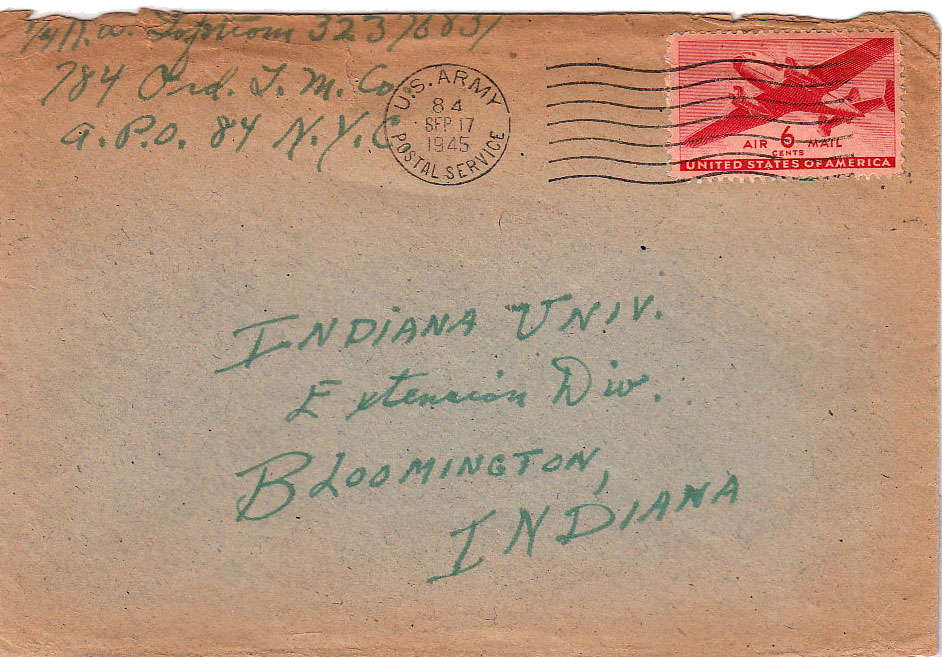 784 Ord. L. M. Co.
A.P.O. 84 N.Y.C
U.S. ARMY
84
SEP 17
1945
POSTAL SERVICE
AIR 6 MAIL
CENTS
UNITED STATES OF AMERICA
INDIANA UNIV.
Extension Div.
BLOOMINGTON,
INDIANA